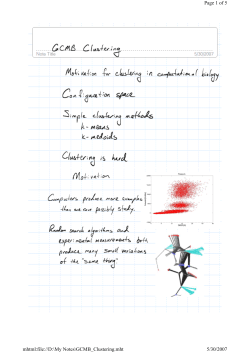 Page 1 of 5
GCMB Clustering
Note Title
5/30/2007
Motivation for clustering in computational biology
Configuration space
Simple clustering methods
k-means
k-medoids
Clustering is hard
Motivation
Computers produce more examples
than we can possibly study.
Random search algorithms and
experimental measurements both
produce many small variations
of the "same thing"
mhtml:file://D:\My Notes\GCMB_Clustering.mht
5/30/2007